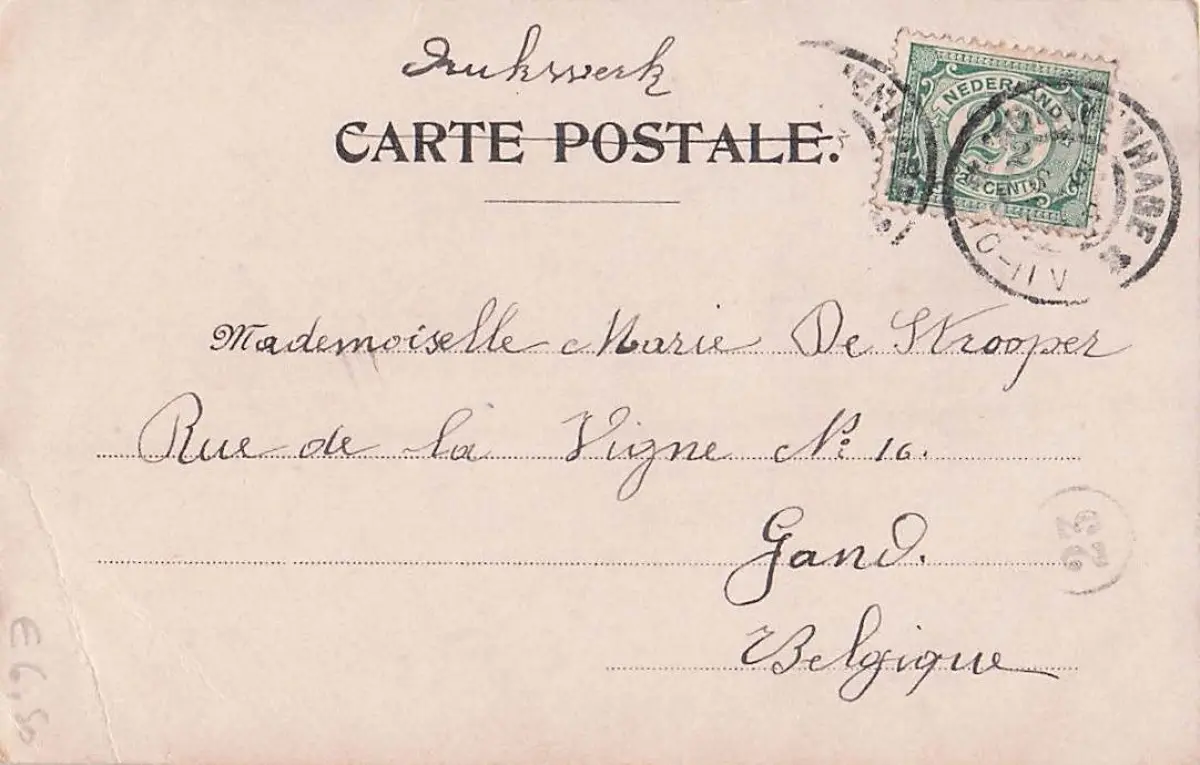 Drukwerk
CARTE POSTALE.
NEDERLAND
2½
CENT
NHAGE
10-11 V
Mademoiselle Marie De Strooper
Rue de la Vigne N° 16.
Gand.
Belgique
E 6,50